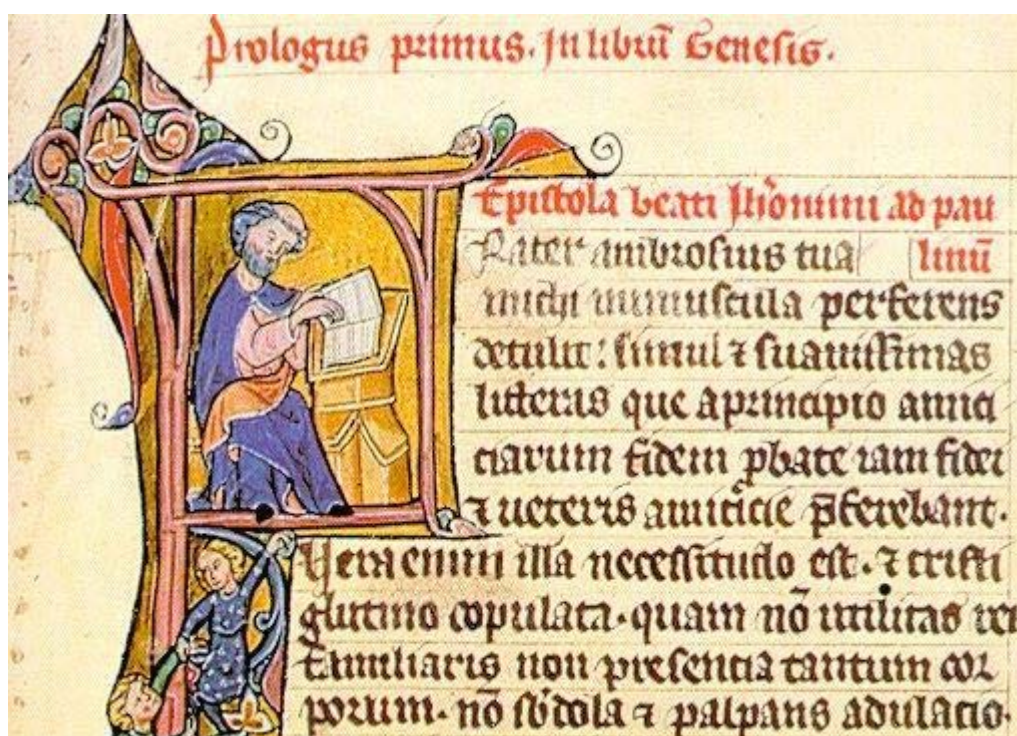 Prologus primus. In librū Genesis.
Epistola beati Jh'onimi ad pau
linū
Rater ambrosius tua
michi munuscula perferens
detulit: simul ⁊ suauissimas
litteras que aprincipio amici
ciarum fidem ꝓbate iam fidei
⁊ ueteris amicicie p̄ferebant.
Uera enim illa necessitudo est. ⁊ cristi
glutino copulata. quam nō utilitas rei
familiaris non presencia tantum cor
porum. nō sb'dola ⁊ palpans adulacio.